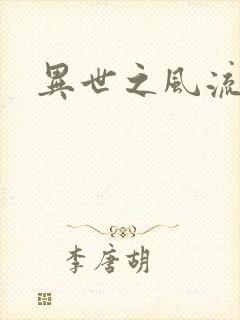 異世之風流
李唐胡